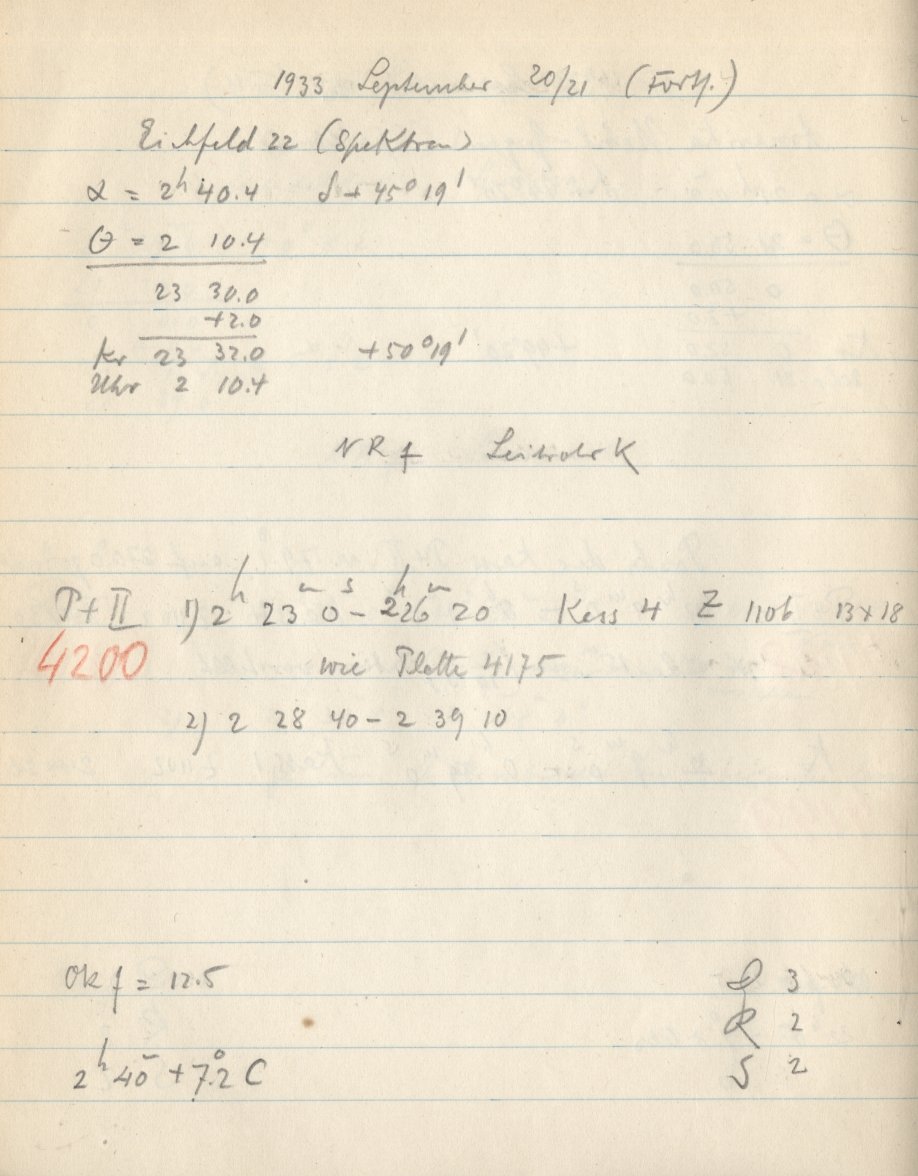 1933 September 20/21 (Forts.)
Eichfeld 22 (Spektren)
α = 2h 40.4 δ + 45° 19'
Θ = 2 10.4
23 30.0
+2.0
Kr 23 32.0 +50° 19'
Uhr 2 10.4
NR f Leitrohr K
P+II 1) 2h 23m 0s – 2h 26m 20 Kass 4 Z 1106 13 x 18
4200 wie Platte 4175
2) 2 28 40 – 2 39 10
Ok f = 12.5 3
R 2
2h 40m +7.°2 C S 2